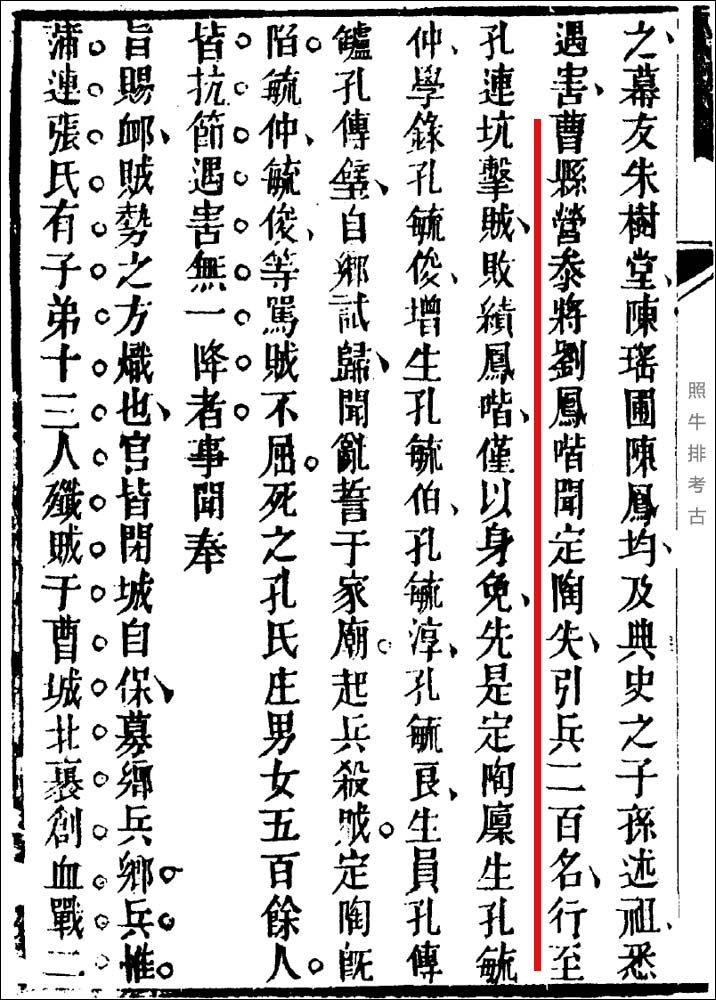 之幕友朱樹堂陳瑤圃陳鳳均及典史之子孫述祖悉
遇害曹縣營叅將劉鳳喈聞定陶失引兵二百名行至
孔連坑擊賊敗績鳳喈僅以身免先是定陶廩生孔毓
仲學錄孔毓俊增生孔毓伯孔毓淳孔毓良生員孔傳
鱸孔傳壁自鄉試歸聞亂誓于家廟起兵殺賊定陶旣
陷毓仲毓俊等罵賊不屈死之孔氏庄男女五百餘人
皆抗節遇害無一降者事聞奉
旨賜卹賊勢之方熾也官皆閉城自保募鄉兵鄉兵惟
蒲連張氏有子弟十三人殲賊于曹城北裹創血戰二
照牛排考古